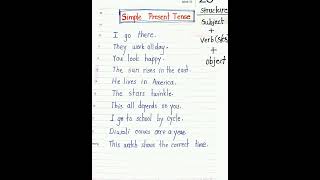 Simple Present Tense
I go there.
They work all day.
You look happy.
The sun rises in the east.
He lives in America.
The stars twinkle.
This all depends on you.
I go to school by cycle.
Diwali comes once a year.
This watch shows the correct time.
structure
Subject
+
verb (s/es)
+
object